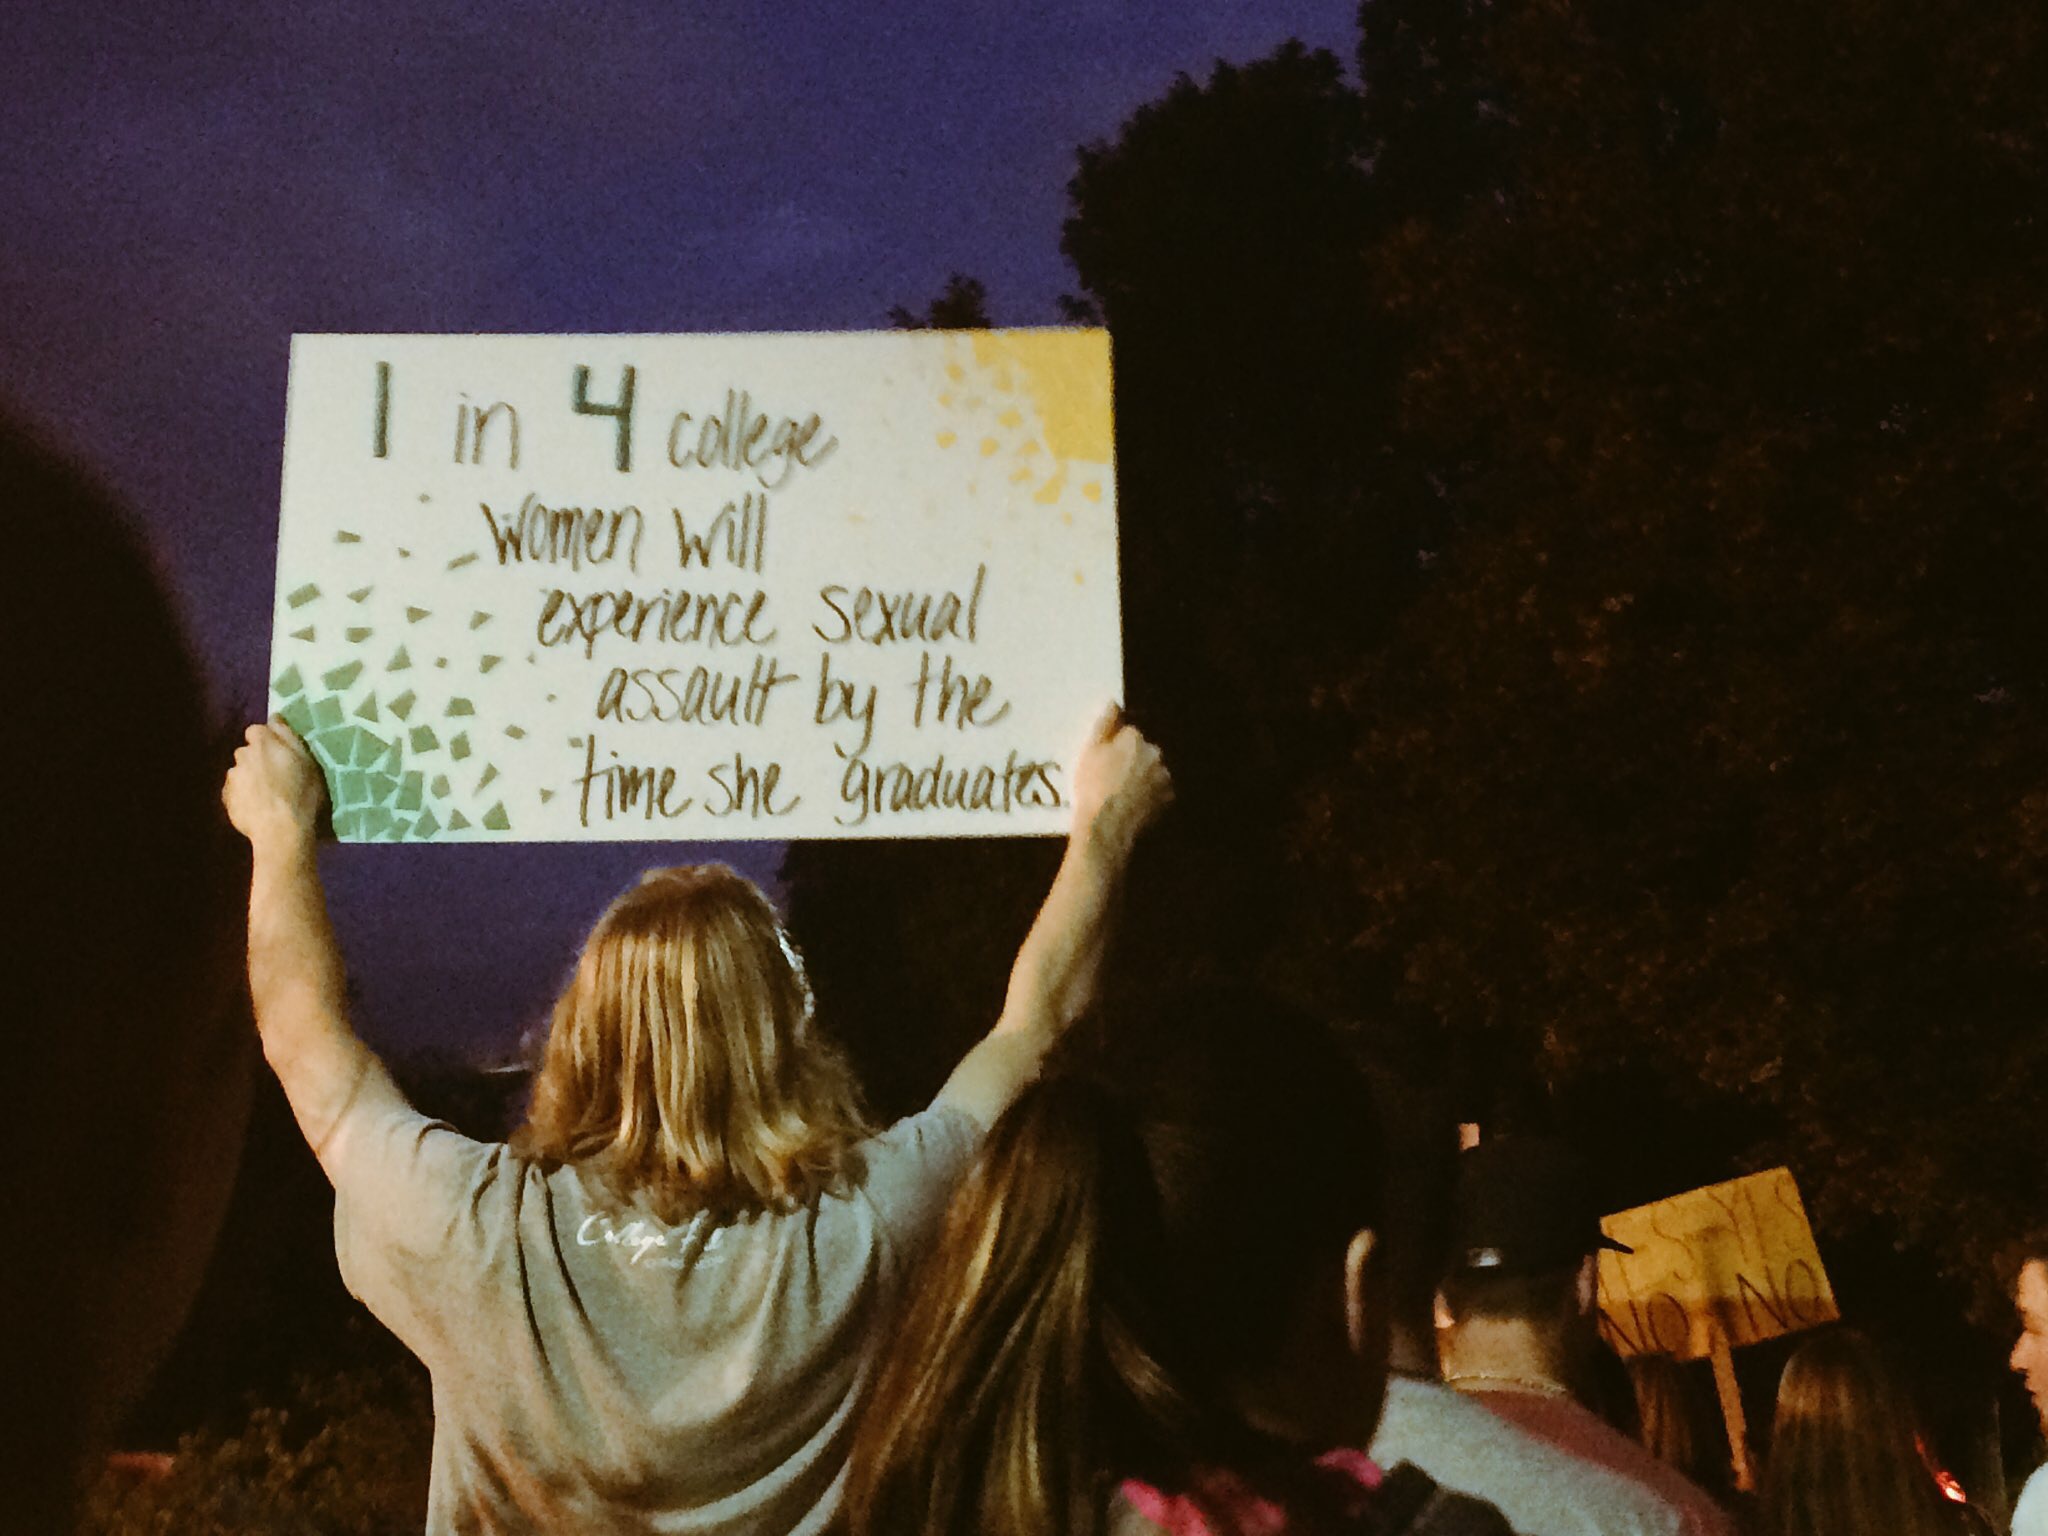 1 in 4 college
women will
experience sexual
assault by the
time she graduates.
College
YES
NO NO